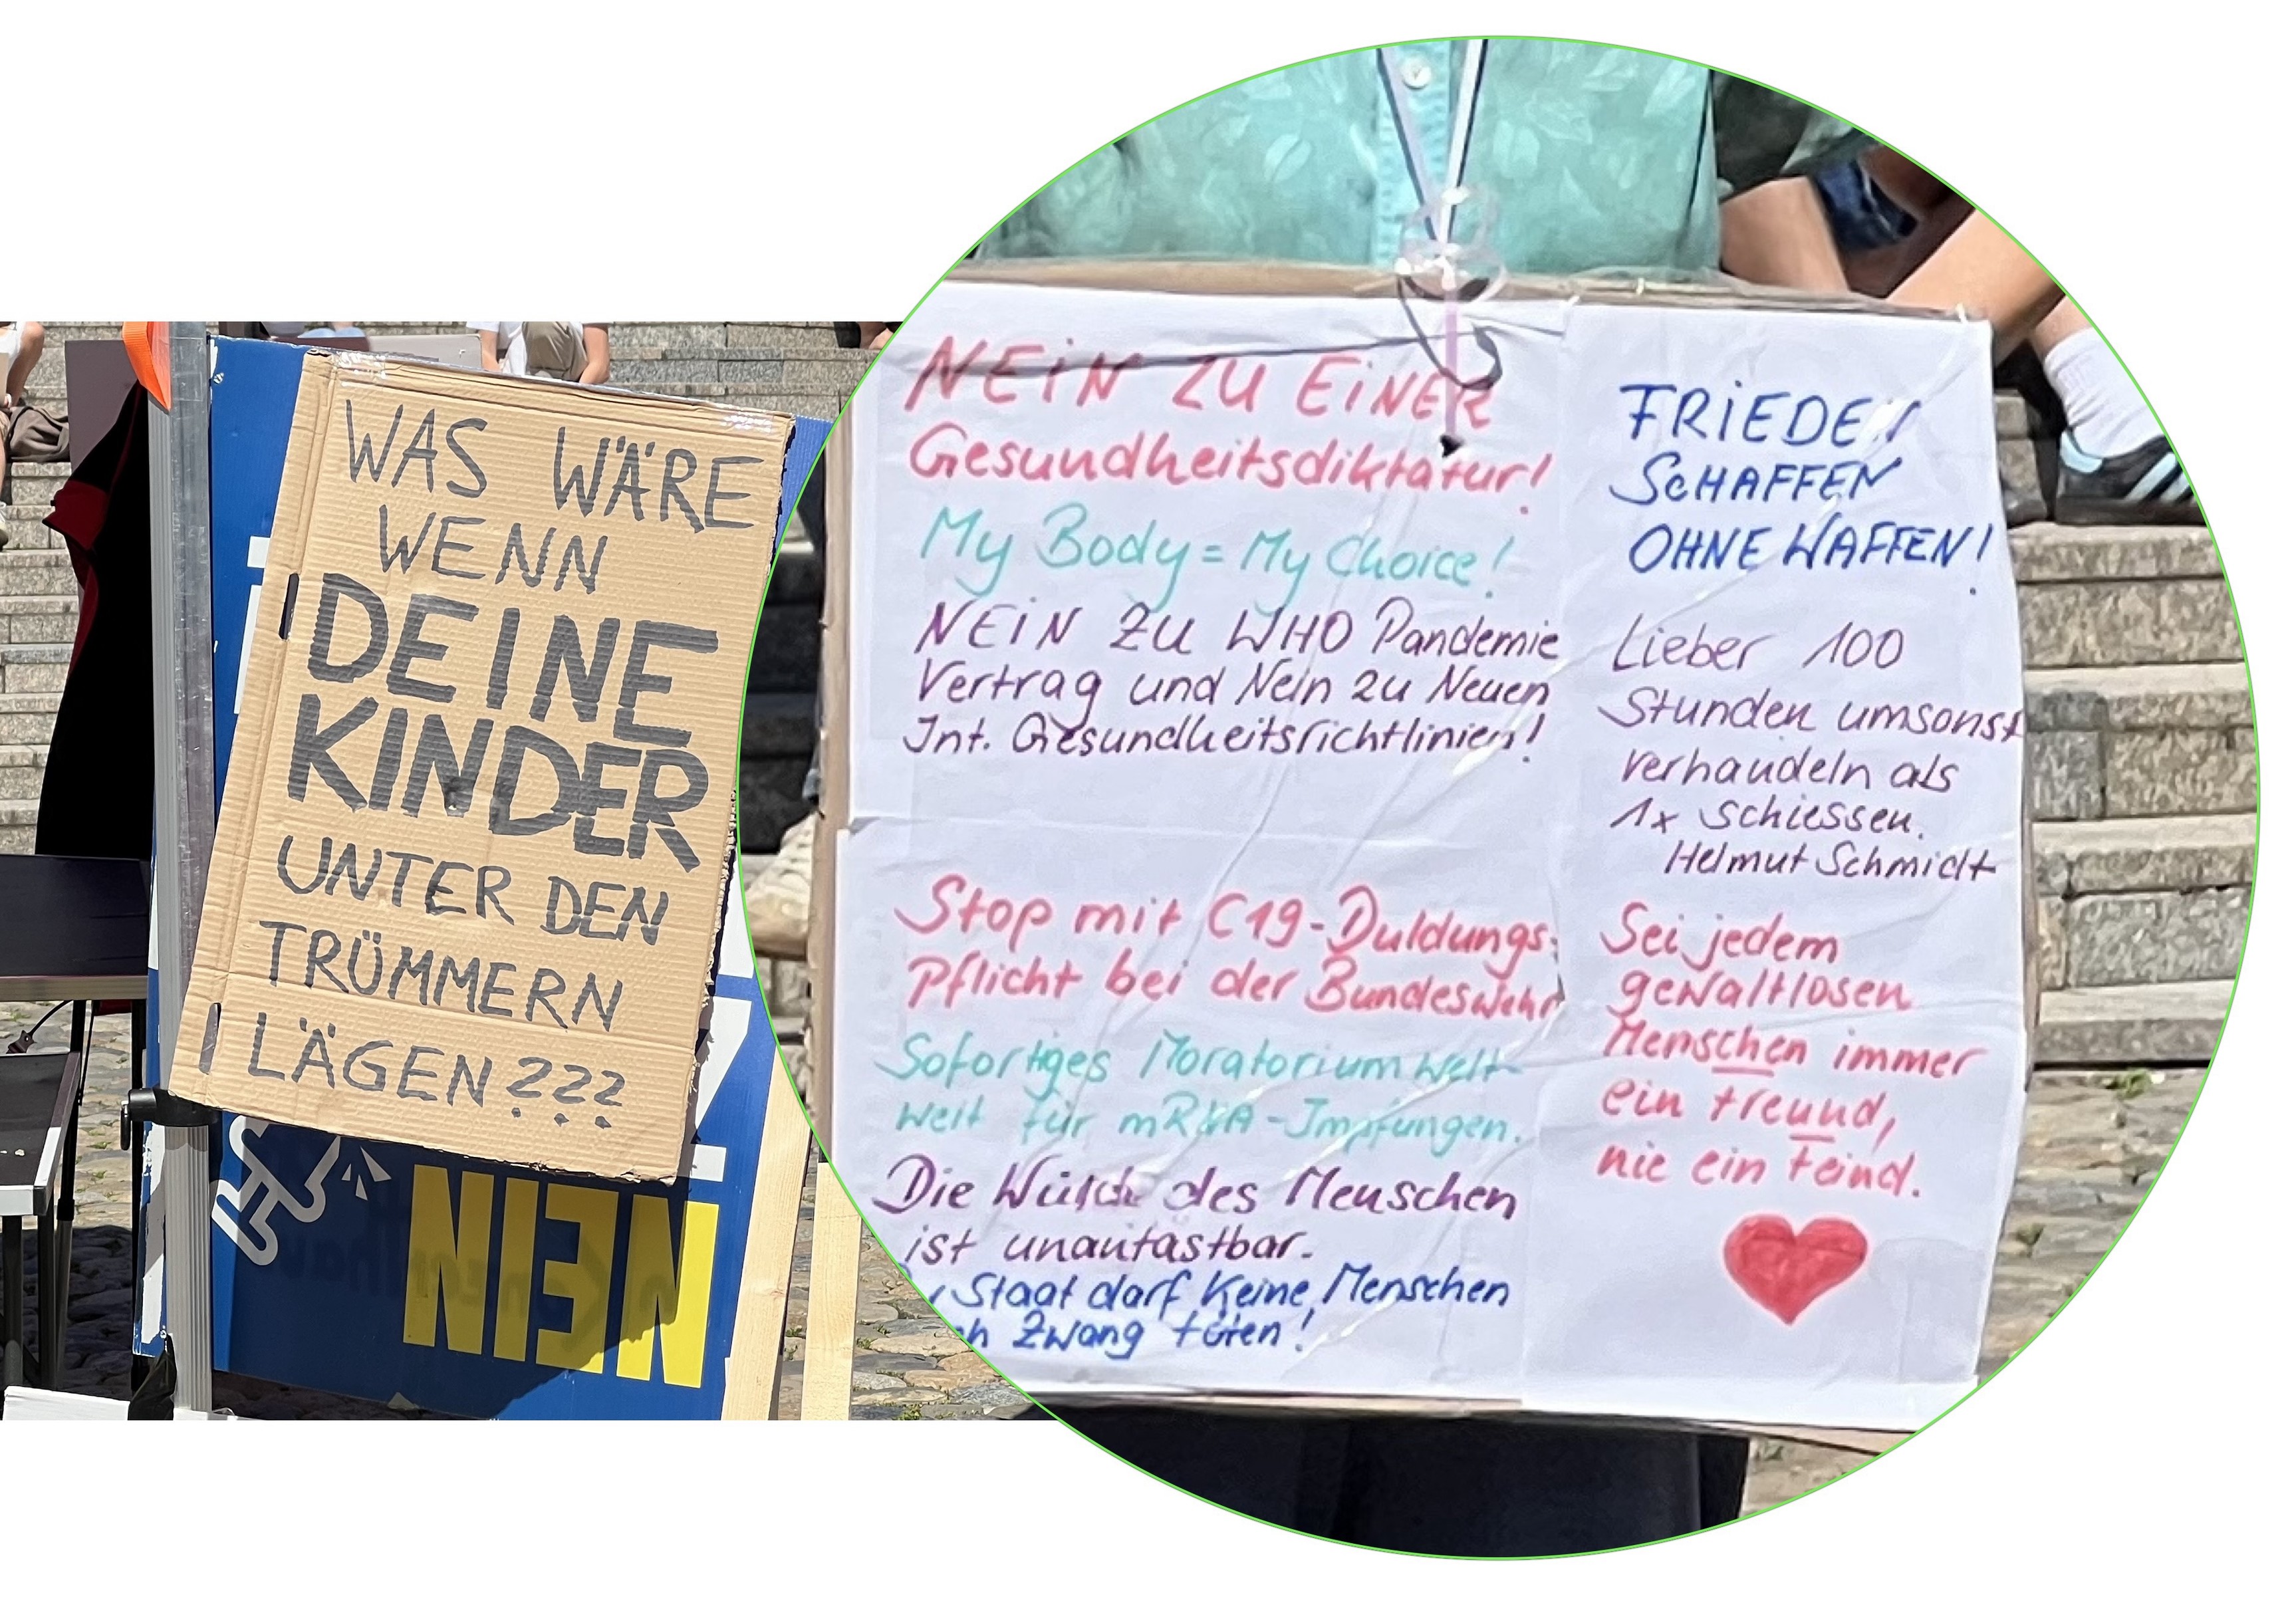 WAS WÄRE
WENN
DEINE
KINDER
UNTER DEN
TRÜMMERN
LÄGEN???
NEIN
NEIN ZU EINER
Gesundheitsdiktatur!
My Body = My Choice!
NEIN ZU WHO Pandemie
Vertrag und Nein zu Neuen
Int. Gesundheitsrichtlinien!
Stop mit C19-Duldungs-
Pflicht bei der Bundeswehr
Sofortiges Moratorium welt-
weit für mRNA-Impfungen.
Die Würde des Menschen
ist unantastbar.
Staat darf Keine Menschen
Zwang töten!
FRIEDEN
SCHAFFEN
OHNE WAFFEN!
Lieber 100
Stunden umsonst
verhandeln als
1x schiessen.
Helmut Schmidt
Sei jedem
gewaltlosen
Menschen immer
ein Freund,
nie ein Feind.